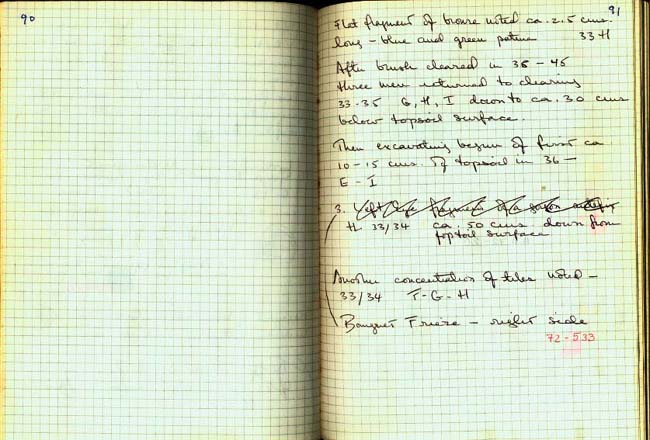 90
91
Flat fragment of bronze noted ca. 2.5 cms.
long - blue and green patina 33 H
After brush cleared in 36 - 45
three men returned to clearing
33-35 G, H, I down to ca. 30 cms
below topsoil surface.
Then excavating begun of first ca
10-15 cms. of topsoil in 36 -
E - I
3. fragment of a
H 33/34 ca. 50 cms. down from
topsoil surface
Another concentration of tiles noted -
33/34 F-G-H
Banquet Frieze - right side
72-533